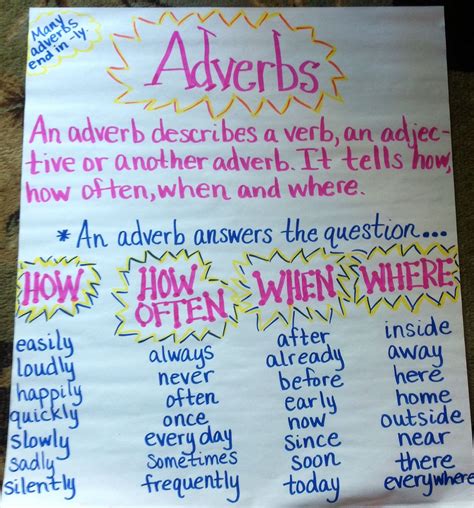 Many
adverbs
end in -ly.
Adverbs
An adverb describes a verb, an adjec-
tive or another adverb. It tells how,
how often, when and where.
* An adverb answers the question...
HOW
easily
loudly
happily
quickly
slowly
sadly
silently
HOW
OFTEN
always
never
often
once
every day
sometimes
frequently
WHEN
after
already
before
early
now
since
soon
today
WHERE
inside
away
here
home
outside
near
there
everywhere